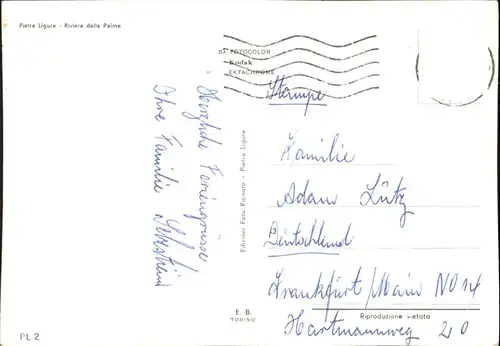 Pietra Ligure - Riviera delle Palme
DA FOTOCOLOR
Kodak
EKTACHROME
Stampe
Herzliche Feriengrüsse
Ihre Familie
Edizioni Foto Rainato - Pietra Ligure
Familie
Adam Lütz
Deutschland
Frankfurt/Main NO 14
Hartmannweg 20
E. B.
TORINO
Riproduzione vietata
PL 2